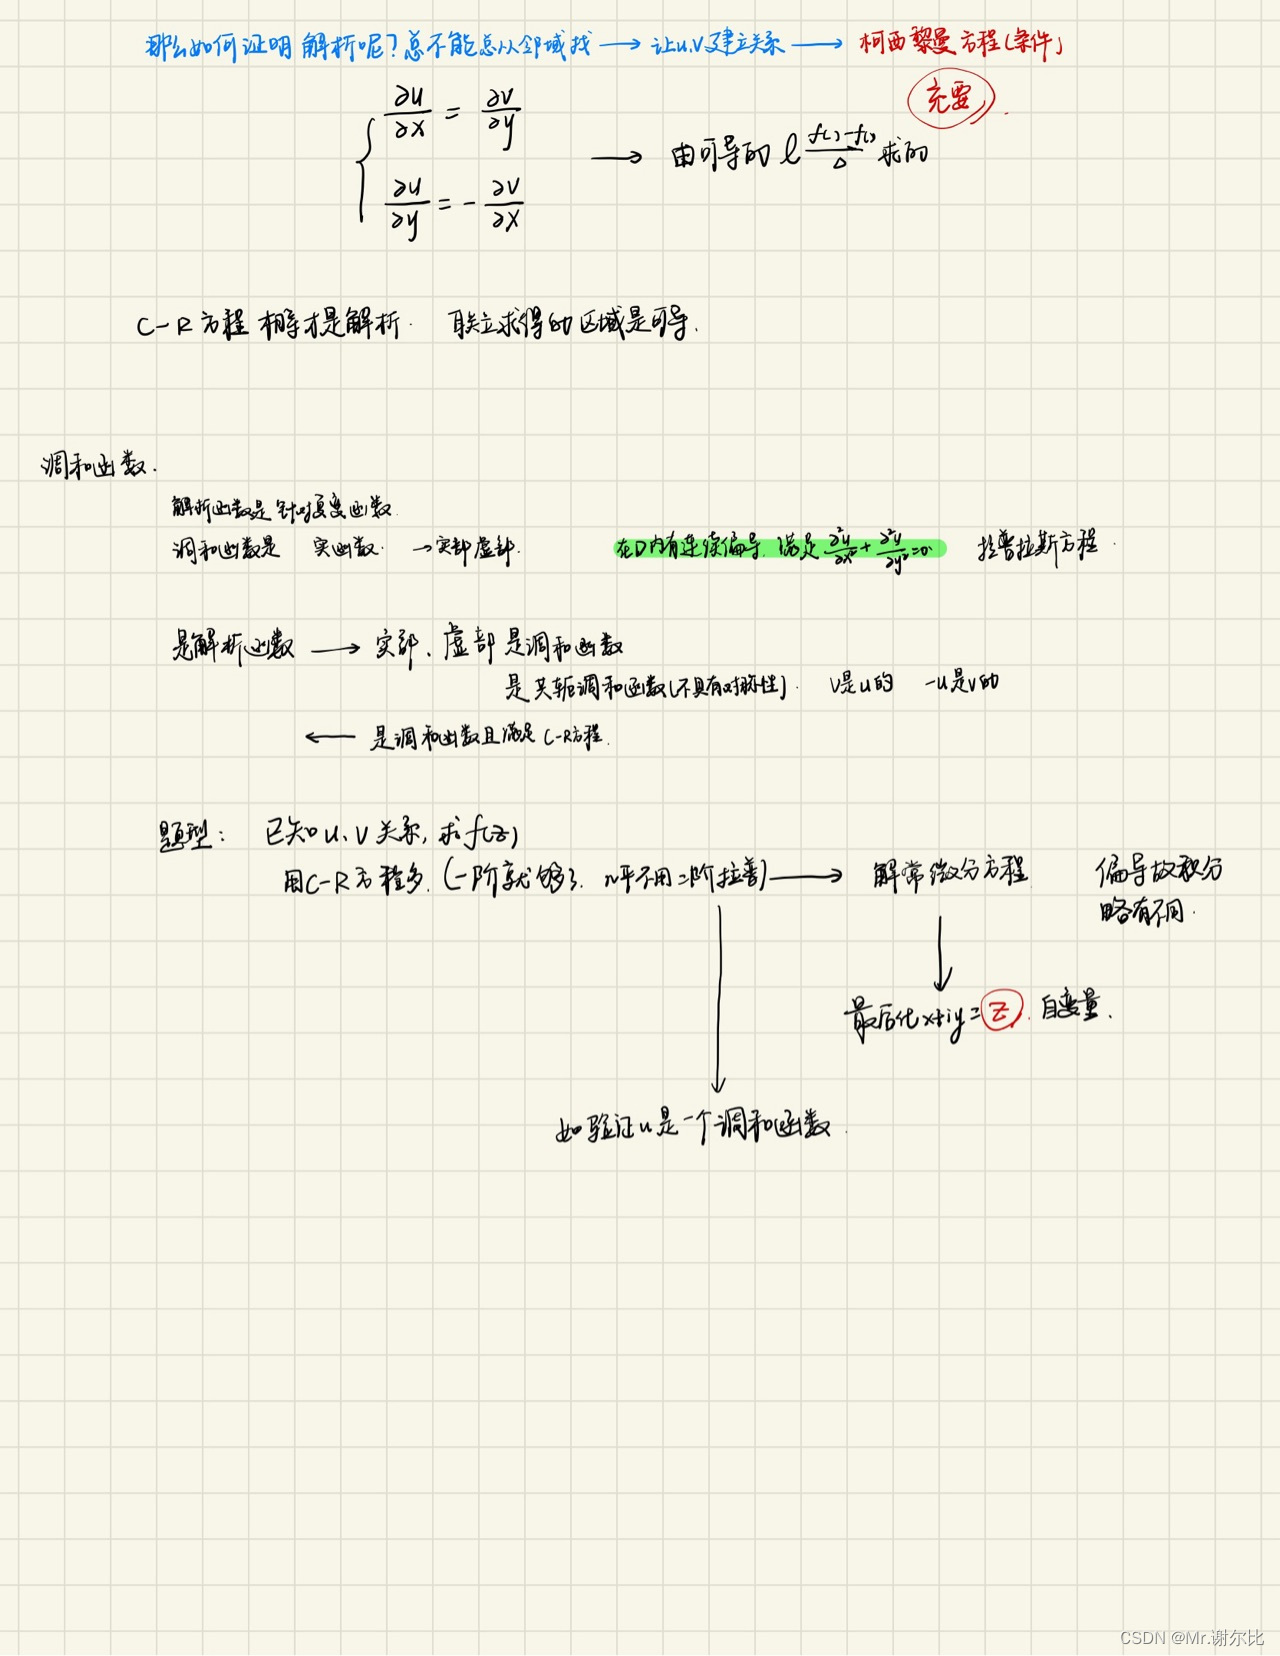 那么如何证明解析呢?总不能总从邻域找 → 让u,v建立关系 → 柯西黎曼方程(条件)
充要
∂u/∂x = ∂v/∂y
→ 由可导的 l f( )-f( )/Δ 求的
∂u/∂y = - ∂v/∂x
C-R方程 相等才是解析. 联立求得的区域是可导.
调和函数.
解析函数是针对复变函数
调和函数是 实函数. → 实部虚部. 在D内有连续偏导. 满足 ∂²u/∂x² + ∂²u/∂y² = 0. 拉普拉斯方程.
是解析函数 → 实部、虚部是调和函数
是共轭调和函数(不具有对称性). v是u的 -u是v的
← 是调和函数且满足C-R方程.
题型: 已知u、v关系, 求f(z)
用C-R方程多. (一阶就够了. 几乎不用二阶拉普) → 解常微分方程 偏导故积分
略有不同.
最后化x+iy=z. 自变量.
如验证u是一个调和函数.
CSDN @Mr.谢尔比